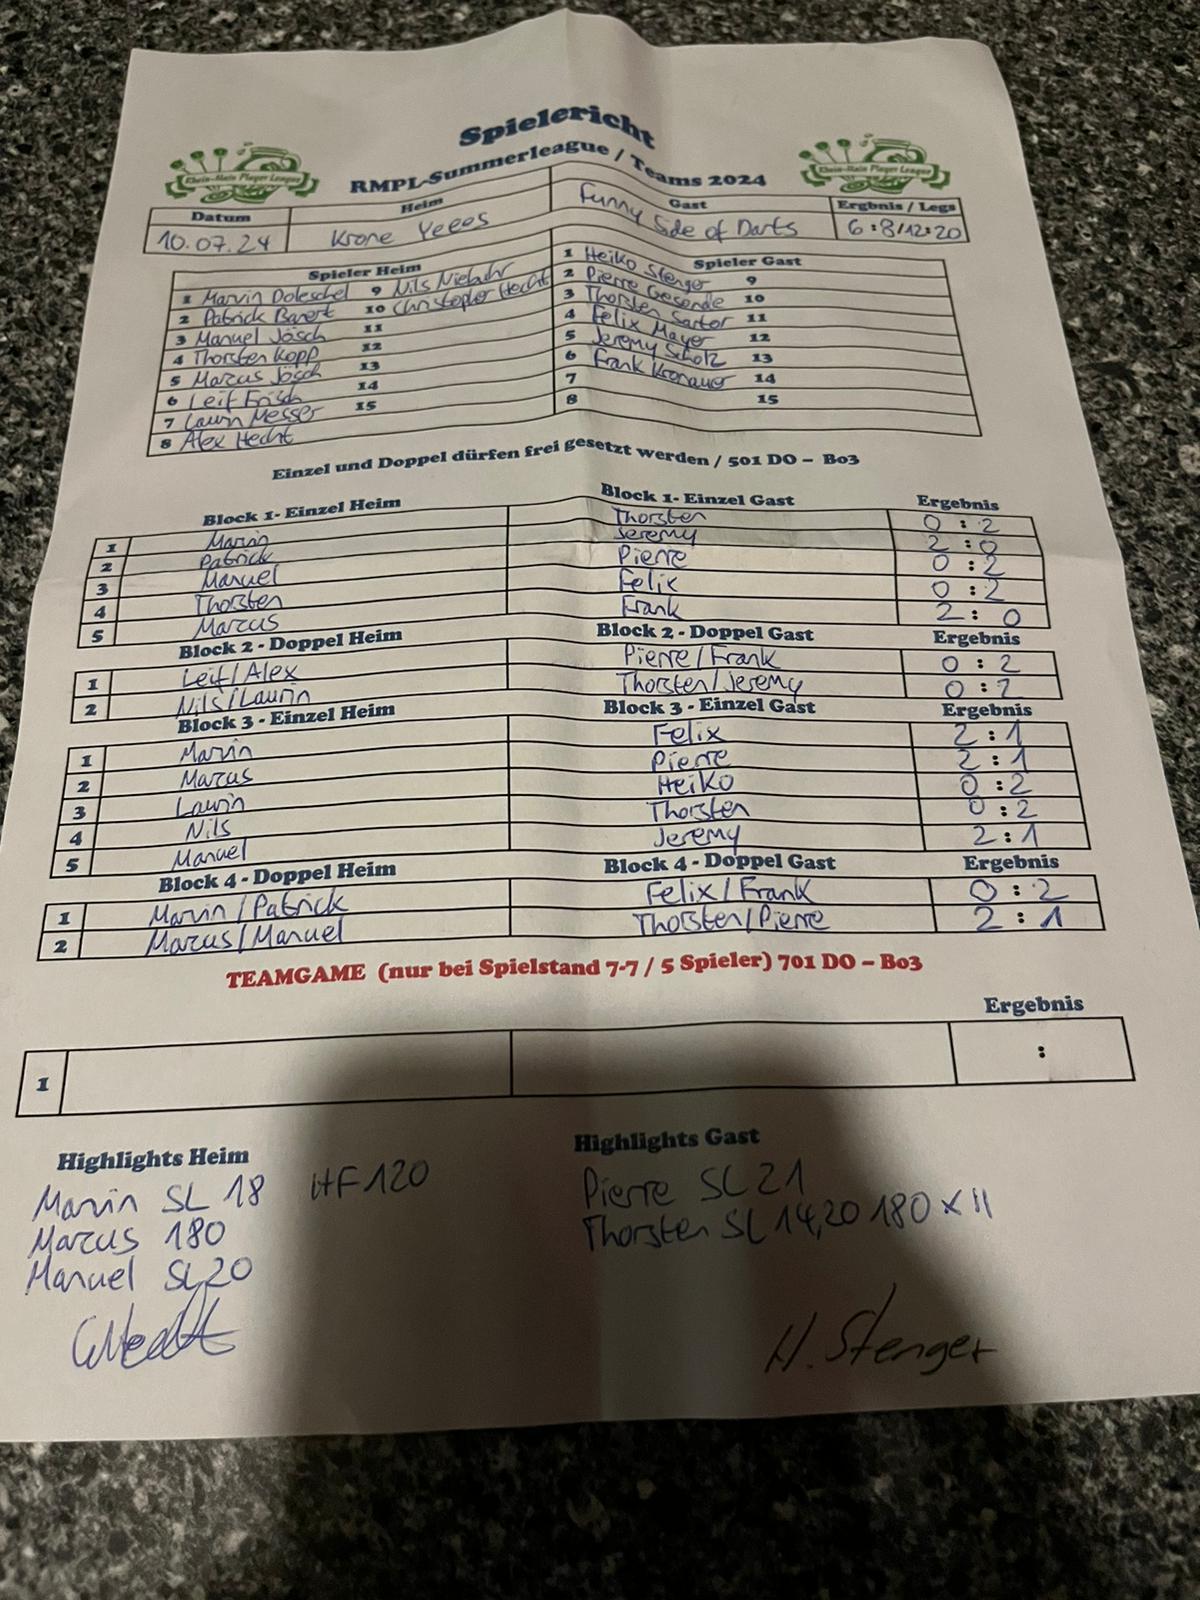 Spielericht
RMPL-Summerleague / Teams 2024
Rhein-Main Player League
Rhein-Main Player League
Datum Heim Gast Ergbnis / Legs
10.07.24 Krone Yeees Funny Side of Darts 6:8/12:20
Spieler Heim Spieler Gast
1 Marvin Doleschel 9 Nils Niebuhr 1 Heiko Stenger 9
2 Patrick Banert 10 Christopher Hecht 2 Pierre Gesende 10
3 Manuel Jösch 11 3 Thorsten Sartor 11
4 Thorsten Kopp 12 4 Felix Mayer 12
5 Marcus Jösch 13 5 Jeremy Scholz 13
6 Leif Frisch 14 6 Frank Kronauer 14
7 Laurin Messer 15 7 15
8 Alex Hecht 8
Einzel und Doppel dürfen frei gesetzt werden / 501 DO – Bo3
Block 1- Einzel Heim Block 1- Einzel Gast Ergebnis
1 Marvin Thorsten 0 : 2
2 Patrick Jeremy 2 : 0
3 Manuel Pierre 0 : 2
4 Thorsten Felix 0 : 2
5 Marcus Frank 2 : 0
Block 2 - Doppel Heim Block 2 - Doppel Gast Ergebnis
1 Leif/Alex Pierre/Frank 0 : 2
2 Nils/Laurin Thorsten/Jeremy 0 : 2
Block 3 - Einzel Heim Block 3 - Einzel Gast Ergebnis
1 Marvin Felix 2 : 1
2 Marcus Pierre 2 : 1
3 Laurin Heiko 0 : 2
4 Nils Thorsten 0 : 2
5 Manuel Jeremy 2 : 1
Block 4 - Doppel Heim Block 4 - Doppel Gast Ergebnis
1 Marvin/Patrick Felix/Frank 0 : 2
2 Marcus/Manuel Thorsten/Pierre 2 : 1
TEAMGAME (nur bei Spielstand 7-7 / 5 Spieler) 701 DO – Bo3
Ergebnis
1 :
Highlights Heim Highlights Gast
Marvin SL 18 HF 120 Pierre SL 21
Marcus 180 Thorsten SL 14,20 180 x II
Manuel SL 20
H. Stenger